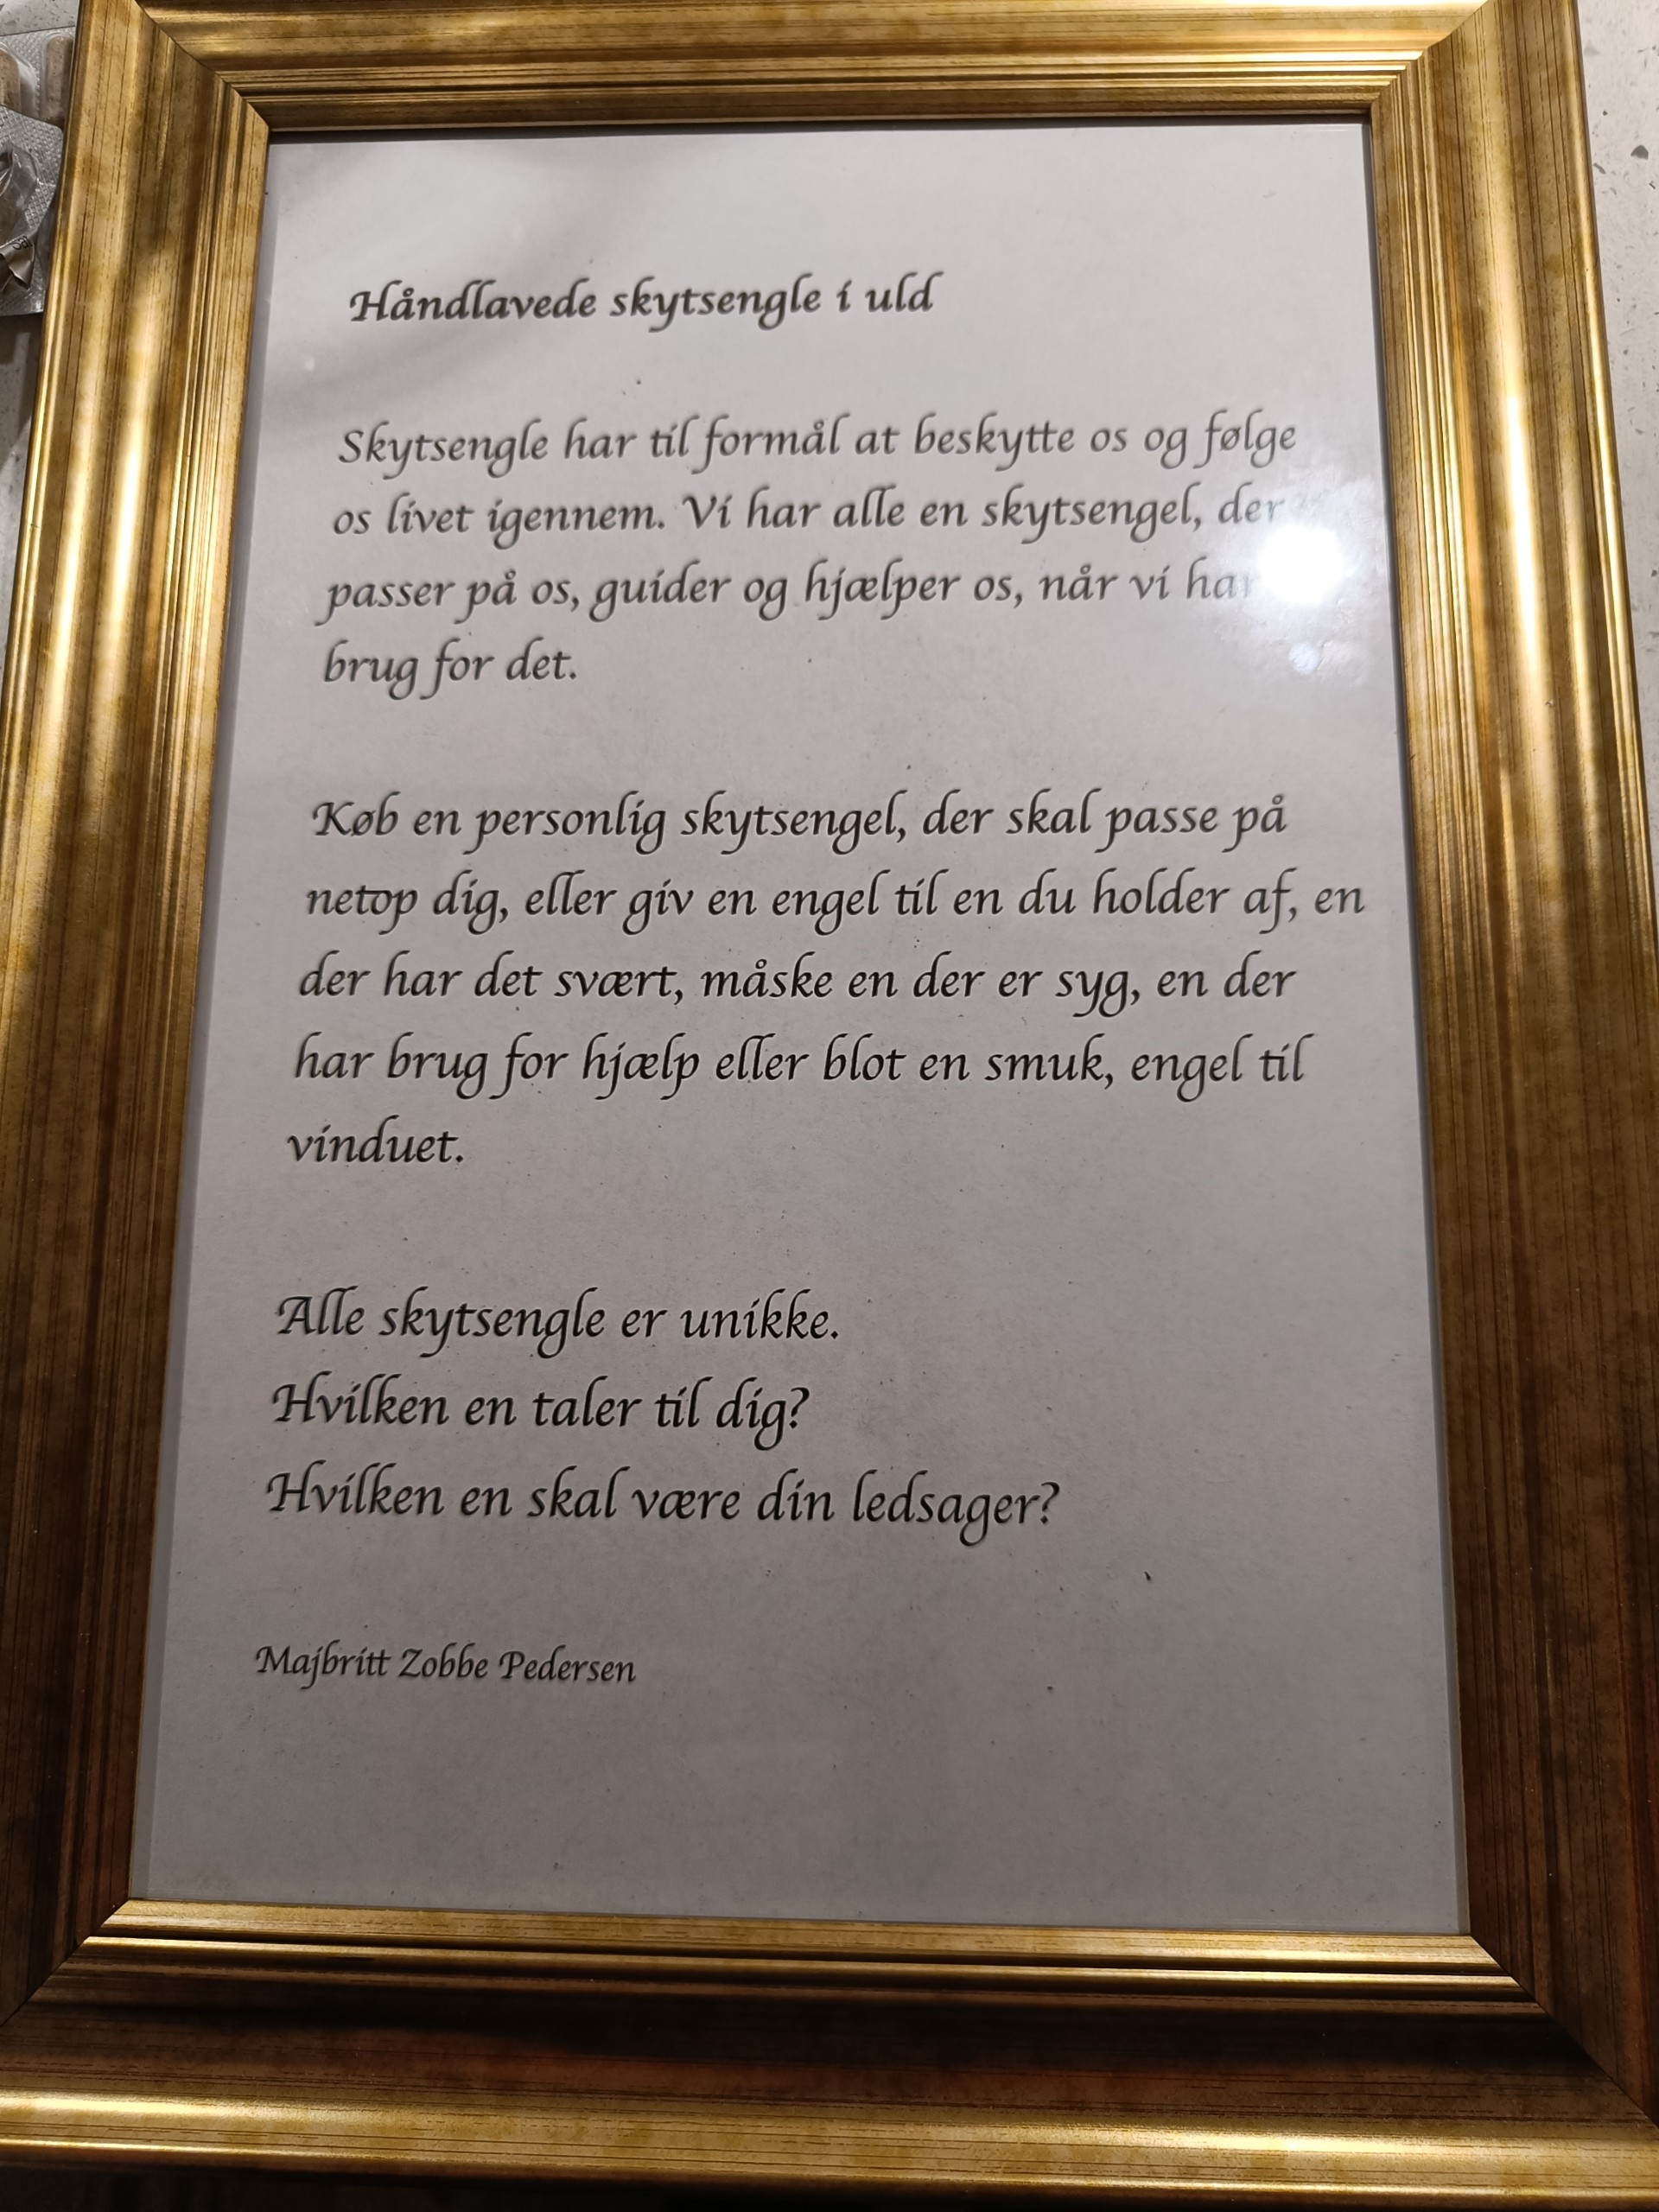 Håndlavede skytsengle i uld
Skytsengle har til formål at beskytte os og følge
os livet igennem. Vi har alle en skytsengel, der
passer på os, guider og hjælper os, når vi har
brug for det.
Køb en personlig skytsengel, der skal passe på
netop dig, eller giv en engel til en du holder af, en
der har det svært, måske en der er syg, en der
har brug for hjælp eller blot en smuk, engel til
vinduet.
Alle skytsengle er unikke.
Hvilken en taler til dig?
Hvilken en skal være din ledsager?
Majbritt Zobbe Pedersen